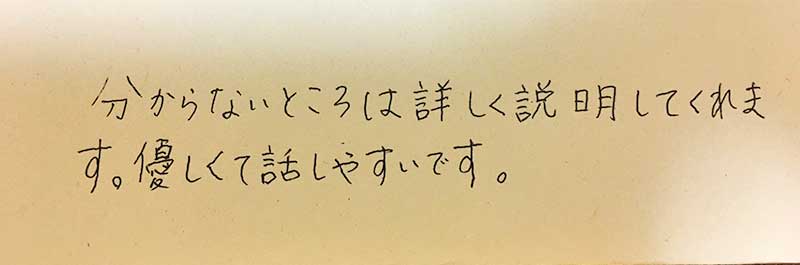 分からないところは詳しく説明してくれま
す。優しくて話しやすいです。